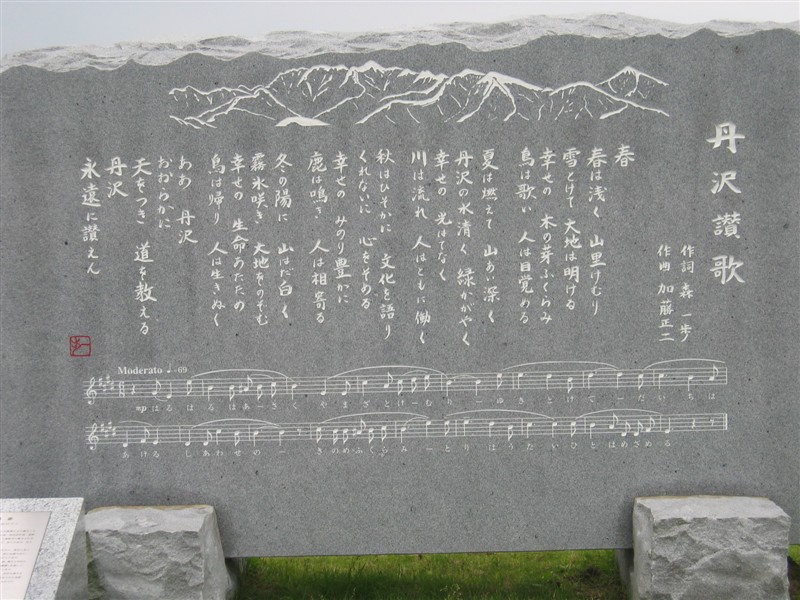 丹沢讃歌
作詞 森 一歩
作曲 加藤正二
春
春は浅く 山里けむり
雪とけて 大地は明ける
幸せの 木の芽ふくらみ
鳥は歌い 人は目覚める
夏は燃えて 山あい深く
丹沢の水清く 緑かがやく
幸せの 光はてなく
川は流れ 人はともに働く
秋はひそかに 文化を語り
くれないに 心をそめる
幸せの みのり豊かに
鹿は鳴き 人は相寄る
冬の陽に 山はだ白く
霧氷咲き 大地をのぞむ
幸せの 生命あたため
鳥は帰り 人は生きぬく
ああ 丹沢
おおらかに
天をつき 道を教える
丹沢
永遠に讃えん
Moderato ♩=69
mp はるはるはあーさく やまざとけーむりー ゆきとけてーだいちは
あける しあわせのー きのめふくらみーとりはうたいひとはめざめる